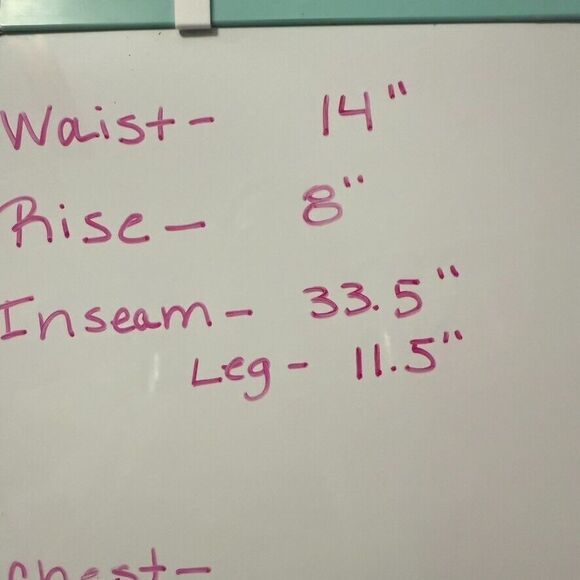 Waist- 14"
Rise- 8"
Inseam- 33.5"
Leg- 11.5"
chest-